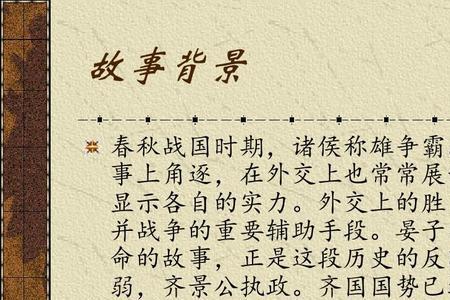 故事背景
春秋战国时期，诸侯称雄争霸
事上角逐，在外交上也常常展
显示各自的实力。外交上的胜
并战争的重要辅助手段。晏子
命的故事，正是这段历史的反
弱，齐景公执政。齐国国势已